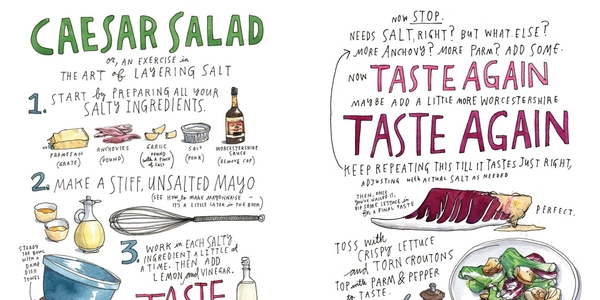 CAESAR SALAD
or, AN EXERCISE in
THE ART of LAYERING SALT
1. START by PREPARING ALL YOUR
SALTY INGREDIENTS.
PARMESAN
(GRATE)
ANCHOVIES
(POUND)
GARLIC
(POUND
with a PINCH
of SALT)
SALT
(POUR)
WORCESTERSHIRE
SAUCE
(REMOVE CAP)
2. MAKE A STIFF, UNSALTED MAYO
(SEE HOW to MAKE MAYONNAISE -
IT'S A LITTLE LATER in THE BOOK)
STEADY
THE BOWL
WITH A
DAMP
DISH
TOWEL
3. WORK in EACH SALTY
INGREDIENT A LITTLE at
A TIME. THEN ADD
LEMON and VINEGAR.
TASTE
NOW STOP.
NEEDS SALT, RIGHT? BUT WHAT ELSE?
MORE ANCHOVY? MORE PARM? ADD SOME.
NOW TASTE AGAIN
MAYBE ADD A LITTLE MORE WORCESTERSHIRE
TASTE AGAIN
KEEP REPEATING THIS TILL IT TASTES JUST RIGHT,
ADJUSTING with ACTUAL SALT AS NEEDED
THEN, ONCE
YOU'VE NAILED IT,
DIP SOME LETTUCE in
FOR A FINAL TASTE
PERFECT.
TOSS with
CRISPY LETTUCE
and TORN CROUTONS
TOP with PARM & PEPPER
to TASTE.